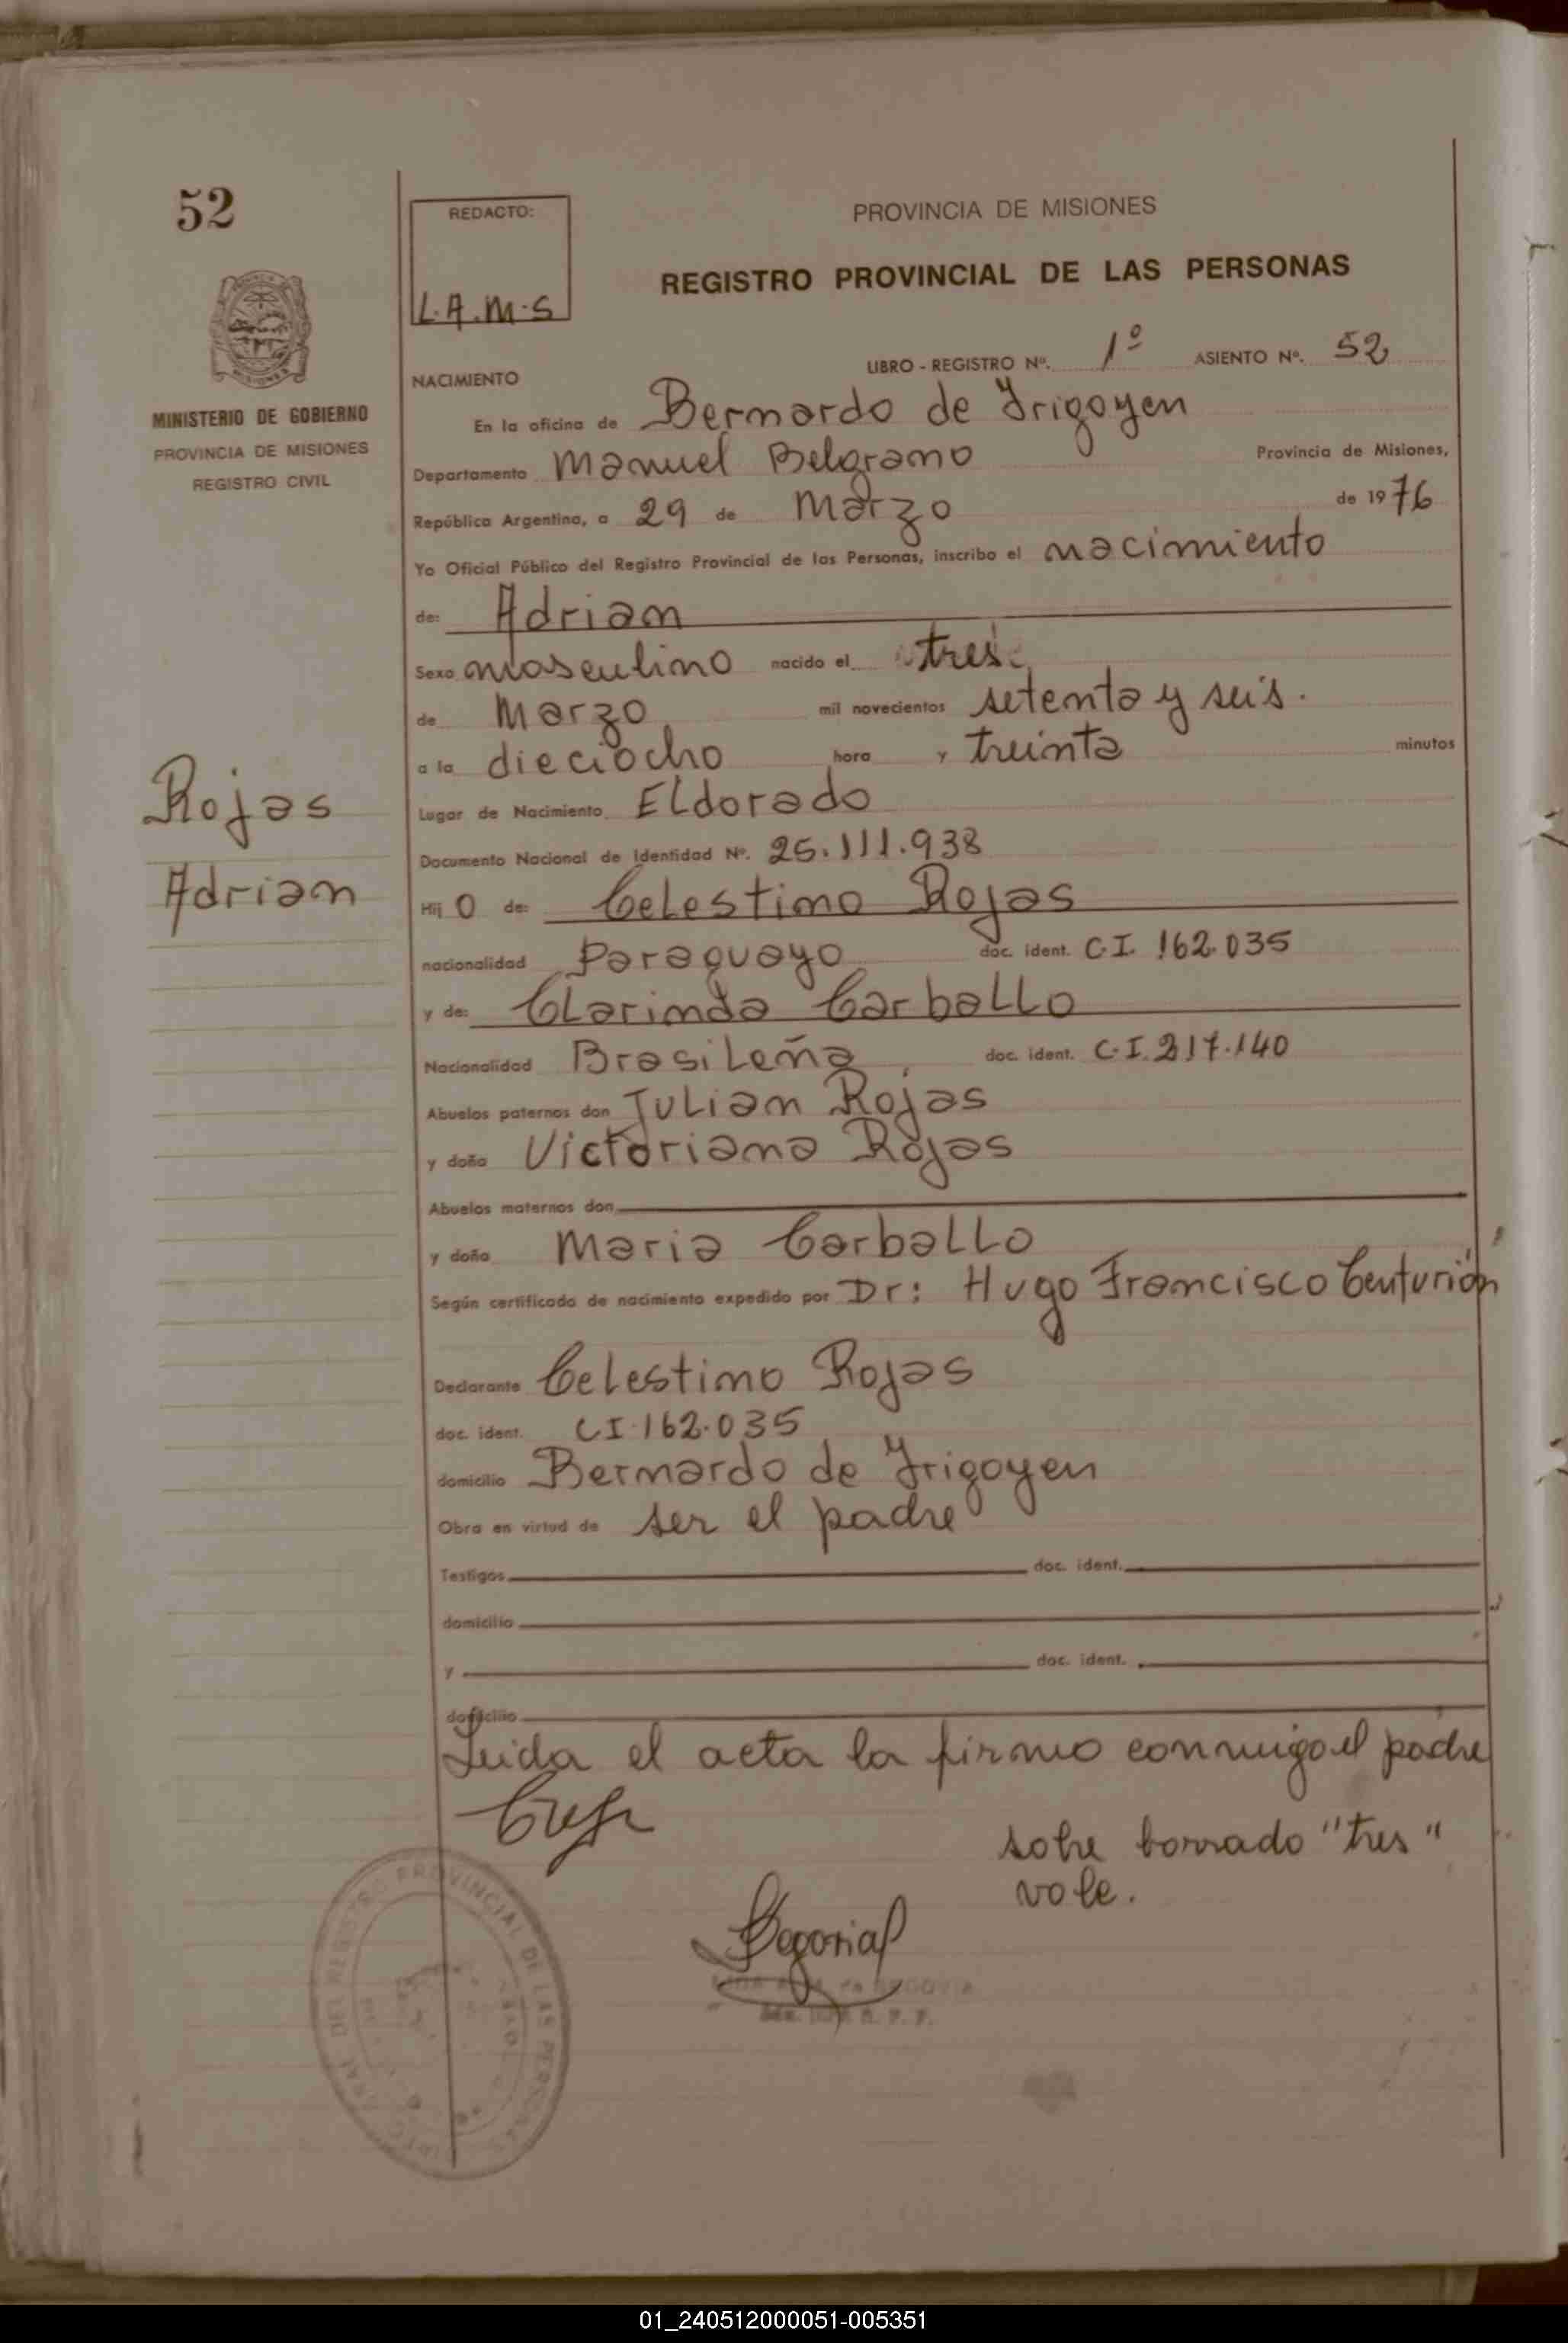 52
REDACTO:
L.A.M.S
PROVINCIA DE MISIONES
REGISTRO PROVINCIAL DE LAS PERSONAS
MINISTERIO DE GOBIERNO
PROVINCIA DE MISIONES
REGISTRO CIVIL
LIBRO - REGISTRO Nº. 1º ASIENTO Nº. 52
NACIMIENTO
En la oficina de Bernardo de Irigoyen
Departamento Manuel Belgrano Provincia de Misiones,
República Argentina, a 29 de Marzo de 1976
Yo Oficial Público del Registro Provincial de las Personas, inscribo el nacimiento
de: Adrian
Sexo masculino nacido el tres
de Marzo mil novecientos setenta y seis.
a la dieciocho hora y treinta minutos
Rojas
Adrian
Lugar de Nacimiento ELdorado
Documento Nacional de Identidad Nº. 25.111.938
Hij o de: Celestino Rojas
nacionalidad Paraguayo doc. ident. C.I. 162.035
y de: Clarinda Carballo
Nacionalidad Brasileña, doc. ident. C.I. 217.140
Abuelos paternos don Julian Rojas
y doña Victoriana Rojas
Abuelos maternos don
y doña Maria Carballo
Según certificado de nacimiento expedido por Dr: Hugo Francisco Centurión
Declarante Celestino Rojas
doc. ident. CI.162.035
domicilio Bernardo de Irigoyen
Obra en virtud de ser el padre
Testigos doc. ident.
domicilio
y doc. ident.
domicilio
Leida el acta la firma conmigo el padre
sobre borrado "tres"
vale.
REGISTRO PROVINCIAL DE LAS PERSONAS
01_240512000051-005351